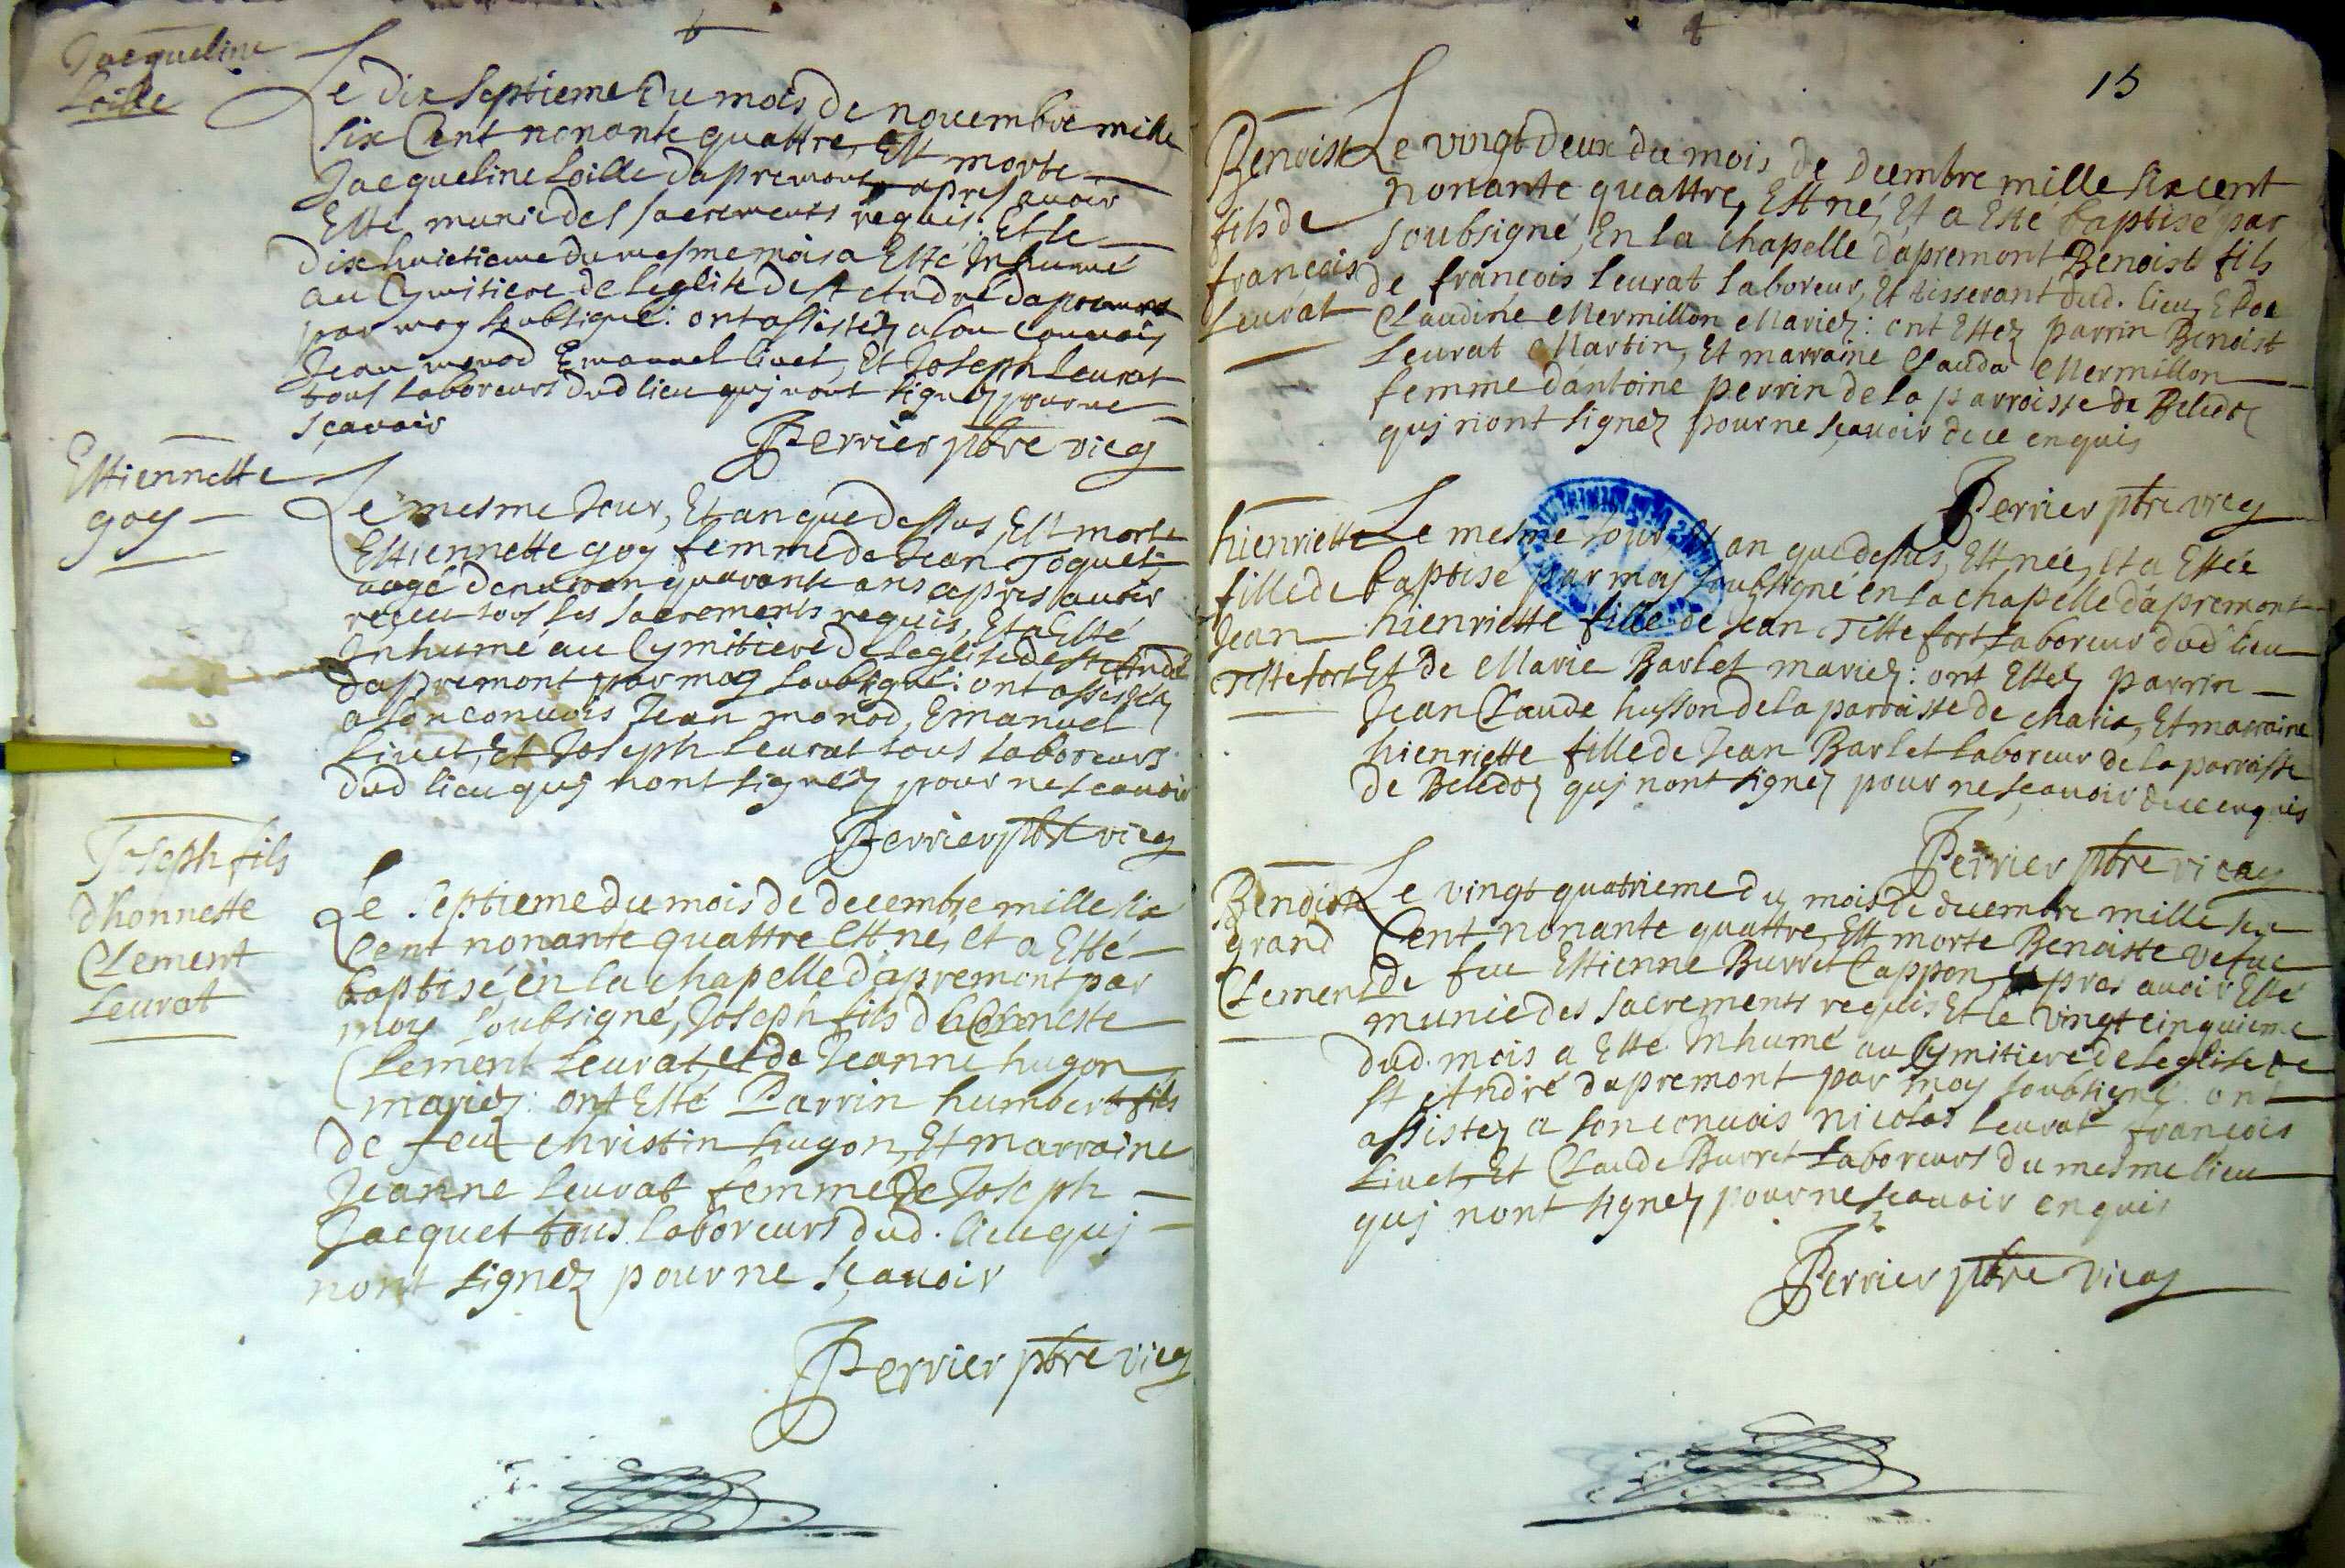 Jacqueline
Loille
Le dix septieme du mois de novembre mille
six Cent nonante quattre, Est morte
Jacqueline Loille dapremont apres avoir
Esté munie des sacrements requis. Et le
dix huictieme du mesme mois a Esté Inhumé
au Cymitiere de leglise de st André dapremont
par moy soubsigné: ont assistéz a son convois
Jean monod Emanuel livet, Et Joseph leurat
tous laboreurs dud lieu quj nont signéz pour ne
sçavoir
Perrier pbre vicq
Estiennette
goy
Le mesme Jour, Et an que dessus, Est morte
Estiennette goy femme de Jean Joquet
aagé denviron quarante ans apres avoir
reçeu tous les sacrements requis, Et a Esté
Inhumé au Cymitiere de leglise de st André
dapremont par moy soubsigné: ont assistéz
a son convois Jean monod, Emanuel
livet, Et Joseph leurat tous laboreurs
dud lieu quj nont signéz pour ne scavoir
Perrier pbre vicq
Joseph fils
dhonneste
Clement
leurat
Le septieme du mois de decembre mille six
Cent nonante quattre Est né, et a Esté
baptisé en la chapelle dapremont par
moy soubsigné, Joseph fils d honneste
Clement leurat, et de Jeanne hugon
mariéz: ont Esté Parrin humbert fils
de feu christin hugon, Et marraine
Jeanne leurat femme de Joseph
Jacquet tous laboreurs dud. lieu quj
nont signéz pour ne sçavoir
Perrier pbre vicq
15
Benoist
fils de
francois
leurat
Le vingt deux du mois de decembre mille six cent
nonante quattre, Est né, Et a Esté baptisé par
soubsigné, En la chapelle dapremont Benoist fils
de françois leurat laboreur, Et tisserant dud. lieu, Et de
Claudine Mermillon Mariéz: ont Estez parrin Benoist
leurat Martin, Et marraine Clauda Mermillon
femme dantoine perrin de la parroisse de Beledoz
quj nont signez pour ne sçavoir de ce enquis
Perrier pbre vicq
hienriette
fille de
Jean
Testefort
Le mesme Jour Et an que dessus, Est née, Et a Estée
baptise par moy soubsigné en la chapelle dapremont
hienriette fille de Jean Teste fort laboreur dud lieu
Et de Marie Barlet mariéz: ont Estez parrin
Jean Claude husson de la parroisse de charix, Et marraine
hienriette fille de Jean Barlet laboreur de la parroisse
de Beledoz quj nont signez pour ne sçavoir de ce enquis
Perrier pbre vicaq
Benoiste
grand
Clement
Le vingt quatrieme du mois de decembre mille six
Cent nonante quattre, Est morte Benoiste vefue
de feu Estienne Burret Cappon, apres avoir Esté
munie des sacrements requis Et le vingt cinquieme
dud. mois a Esté Inhumé au Cymitiere de leglise de
st André dapremont par moy soubsigné. ont
assistez a son convois nicolas leurat françois
livet, Et Claude Burret laboreurs du mesme lieu
quj nont signez pour ne scavoir enquis
Perrier pbre vicq